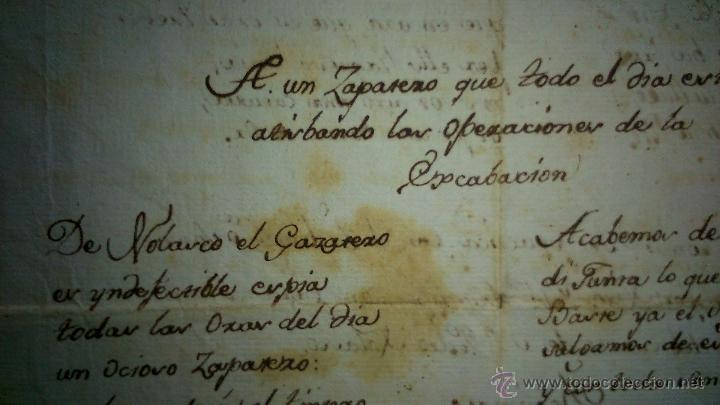 A. un Zapatero que todo el dia es
atisbando las Operaciones de la
Excabacion
De Nolasco el Gazatero
es yndefectible espia
todas las Oras del dia
un Ocioso Zapatero:
Acabemos de
di Tunta lo que
Baste ya el
salgamos de
todocoleccion
© www.todocoleccion.net